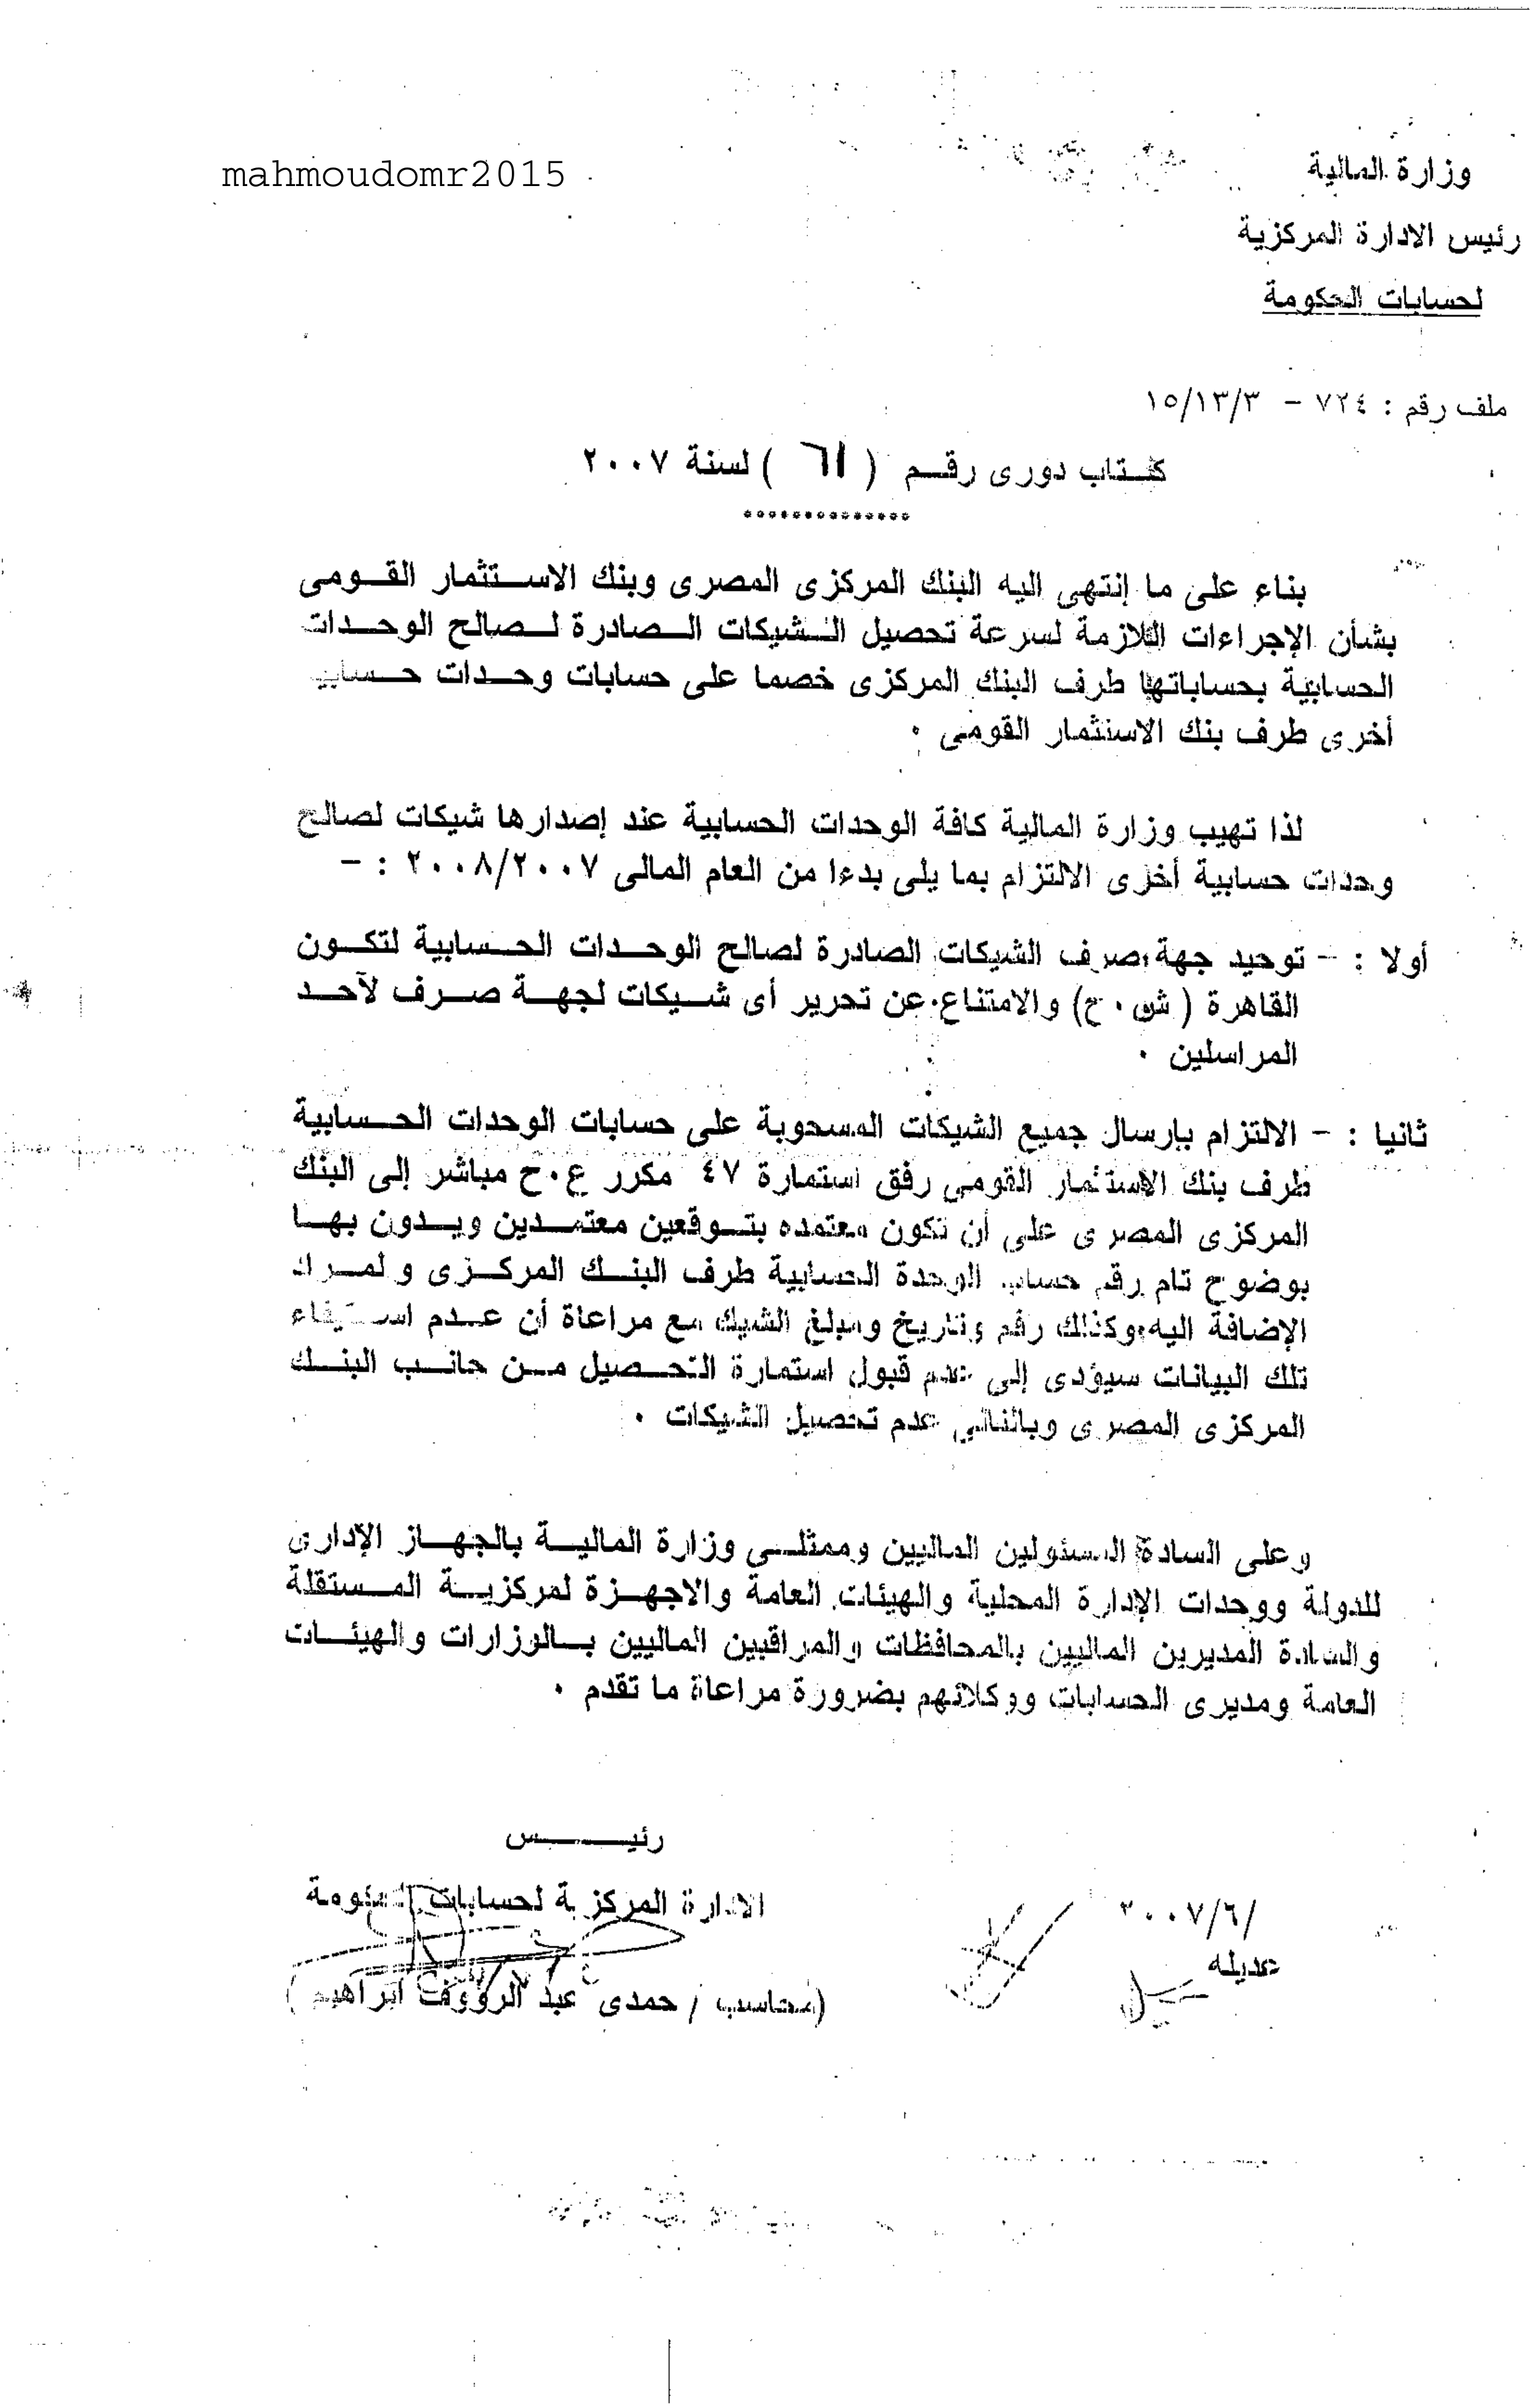 mahmoudomr2015
وزارة المالية
رئيس الادارة المركزية
لحسابات الحكومة
ملف رقم : ٧٢٤ - ١٥/١٣/٣
كتاب دورى رقم ( ٦١ ) لسنة ٢٠٠٧
**************
بناء على ما إنتهى اليه البنك المركزى المصرى وبنك الاستثمار القومى
بشأن الإجراءات اللازمة لسرعة تحصيل الشيكات الصادرة لصالح الوحدات
الحسابية بحساباتها طرف البنك المركزى خصما على حسابات وحدات حسابية
أخرى طرف بنك الاستثمار القومى ٠
لذا تهيب وزارة المالية كافة الوحدات الحسابية عند إصدارها شيكات لصالح
وحدات حسابية أخرى الالتزام بما يلى بدءا من العام المالى ٢٠٠٨/٢٠٠٧ : -
أولا : - توحيد جهة صرف الشيكات الصادرة لصالح الوحدات الحسابية لتكون
القاهرة ( ش ٠ ح) والامتناع عن تحرير أى شيكات لجهة صرف لآحد
المراسلين ٠
ثانيا : - الالتزام بإرسال جميع الشيكات المسحوبة على حسابات الوحدات الحسابية
طرف بنك الاستثمار القومى رفق استمارة ٤٧ مكرر ع٠ح مباشر إلى البنك
المركزى المصرى على أن تكون معتمده بتوقعين معتمدين ويدون بها
بوضوح تام رقم حساب الوحدة الحسابية طرف البنك المركزى ولمراد
الإضافة اليه وكذلك رقم وتاريخ ومبلغ الشيك مع مراعاة أن عدم استيفاء
تلك البيانات سيؤدى إلى عدم قبول استمارة التحصيل من جانب البنك
المركزى المصرى وبالتالى عدم تحصيل الشيكات ٠
وعلى السادة المسئولين الماليين وممثلى وزارة المالية بالجهاز الإدارى
للدولة ووحدات الإدارة المحلية والهيئات العامة والاجهزة لمركزية المستقلة
والسادة المديرين الماليين بالمحافظات والمراقبين الماليين بالوزارات والهيئات
العامة ومديرى الحسابات ووكلائهم بضرورة مراعاة ما تقدم ٠
رئيس
الادارة المركزية لحسابات الحكومة
(محاسب / حمدى عبد الرؤوف ابراهيم )
/٢٠٠٧/٦
عديله